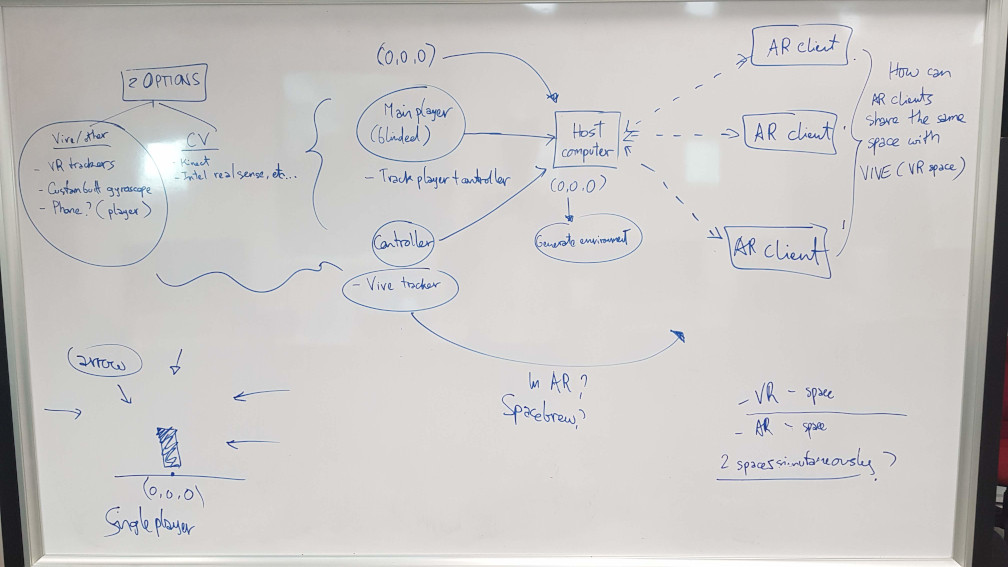 2 OPTIONS
Vive/other
- VR trackers
- Custombuilt gyroscope
- Phone? (player)
CV
- Kinect
- Intel realsense, etc...
(0,0,0)
Main player
(blinded)
- Track player + controller
Controller
- Vive tracker
Host
computer
(0,0,0)
Generate environment
AR client
AR client
AR client
How can
AR clients
share the same
space with
VIVE (VR space)
In AR?
Spacebrew?
arrow
(0,0,0)
Single player
- VR - space
- AR - space
2 spaces simutaneously?